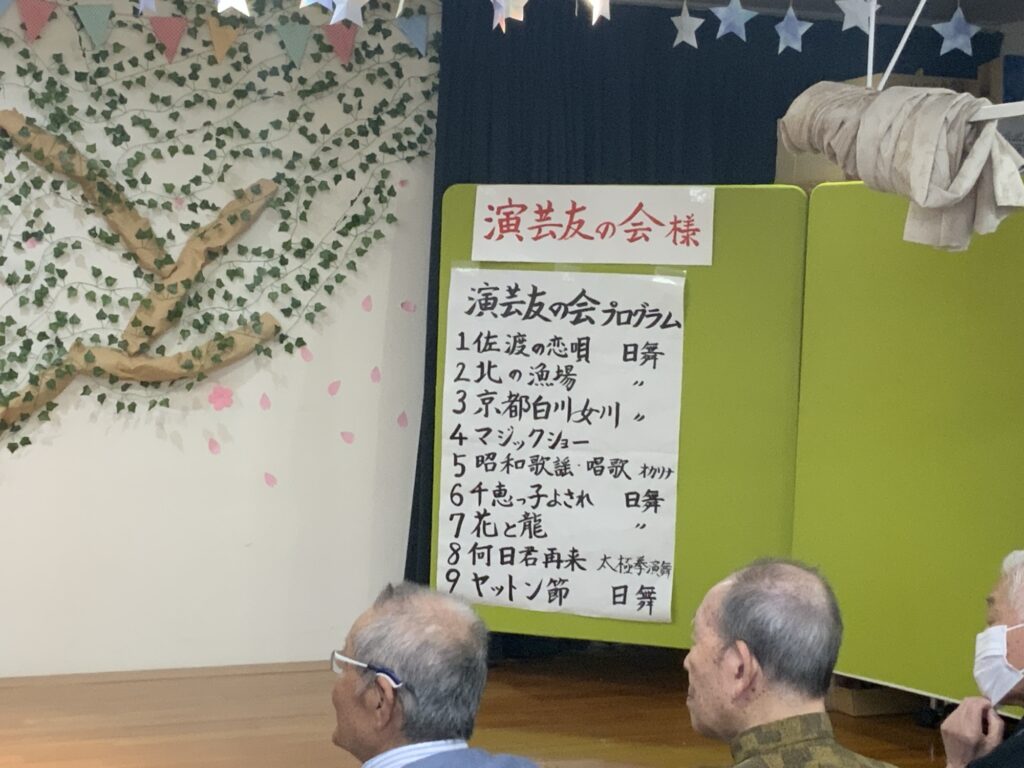 演芸友の会様
演芸友の会プログラム
1 佐渡の恋唄 日舞
2 北の漁場 〃
3 京都白川女川 〃
4 マジックショー
5 昭和歌謡・唱歌 オカリナ
6 千恵っ子よされ 日舞
7 花と龍 〃
8 何日君再来 太極拳演舞
9 ヤットン節 日舞